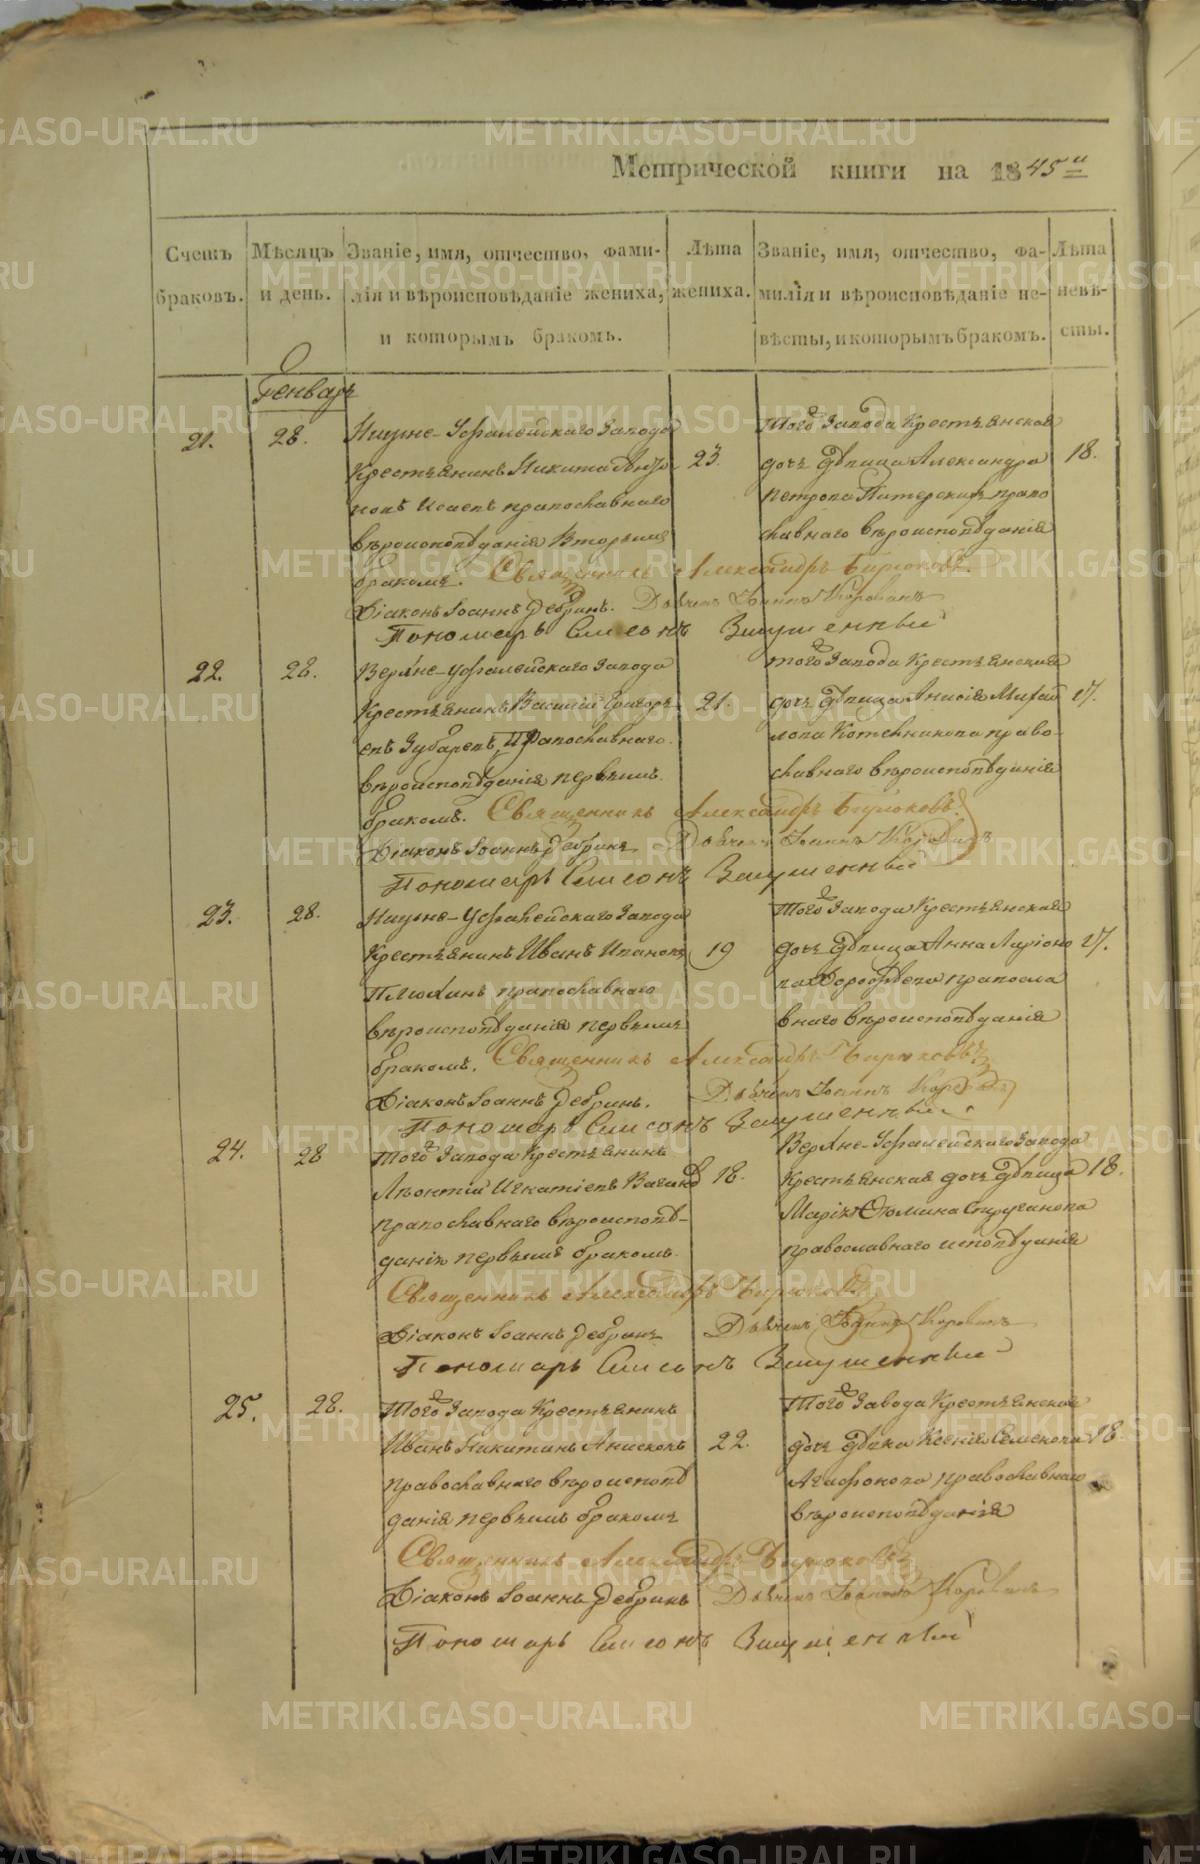 Метрической книги на 1845й
Счетъ браковъ.
Мѣсяцъ и день.
Званіе, имя, отчество, фамилія и вѣроисповѣданіе жениха, и которымъ бракомъ.
Лѣта жениха.
Званіе, имя, отчество, фамилія и вѣроисповѣданіе невѣсты, и которымъ бракомъ.
Лѣта невѣсты.
Генварь
21. 28.
Нижне-Уфалейскаго Завода
Крестьянинъ Никита
Исаевъ православнаго
вѣроисповѣданія вторымъ
бракомъ.
23.
Того Завода Крестьянская
дочь дѣвица Александра
Петрова Питерскихъ право
славнаго вѣроисповѣданія
18.
Священникъ Александръ Бирюковъ.
Діаконъ Іоаннъ Дебринъ. Дьячекъ Іоаннъ Коровинъ
Пономарь Симеонъ
22. 28.
Верхне-Уфалейскаго Завода
Крестьянинъ Василій Григорь
евъ Зубаревъ, Православнаго
вѣроисповѣданія первымъ
бракомъ.
21.
того Завода Крестьянская
дочь дѣвица Анисія Михай
лова Котельникова право-
славнаго вѣроисповѣданія
17.
Священникъ Александръ Бирюковъ.
Діаконъ Іоаннъ Дебринъ Дьячекъ Іоаннъ Коровинъ
Пономарь Симеонъ
23. 28.
Нижне-Уфалейскаго Завода
Крестьянинъ Иванъ Ивановъ
Плюхинъ православнаго
вѣроисповѣданія первымъ
бракомъ.
19
Того Завода Крестьянская
дочь дѣвица Анна Ларіоно
ва Дорофѣева правосла
внаго вѣроисповѣданія
17.
Священникъ Александръ Бирюковъ
Діаконъ Іоаннъ Дебринъ. Дьячекъ Іоаннъ Коровинъ
Пономарь Симеонъ
24. 28
Того Завода Крестьянинъ
Леонтій Игнатіевъ
православнаго вѣроисповѣ-
данія первымъ бракомъ.
18.
Верхне-Уфалейскаго Завода
Крестьянская дочь дѣвица
Марія Ѳомина Струганова
православнаго исповѣданія
18.
Священникъ Александръ Бирюковъ
Діаконъ Іоаннъ Дебринъ Дьячекъ Іоаннъ Коровинъ
Пономарь Симеонъ
25. 28.
Того Завода Крестьянинъ
Иванъ Никитинъ
православнаго вѣроисповѣ
данія первымъ бракомъ
22.
Того Завода Крестьянская
дочь дѣвка Ксенія Семенова
Агафонова православнаго
вѣроисповѣданія
18.
Священникъ Александръ Бирюковъ
Діаконъ Іоаннъ Дебринъ Дьячекъ Іоаннъ Коровинъ
Пономарь Симеонъ
METRIKI.GASO-URAL.RU